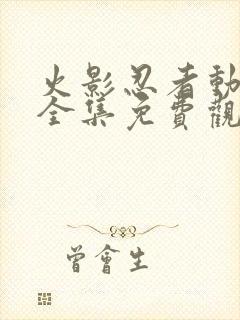 火影忍者動
全集免費觀
曾會生